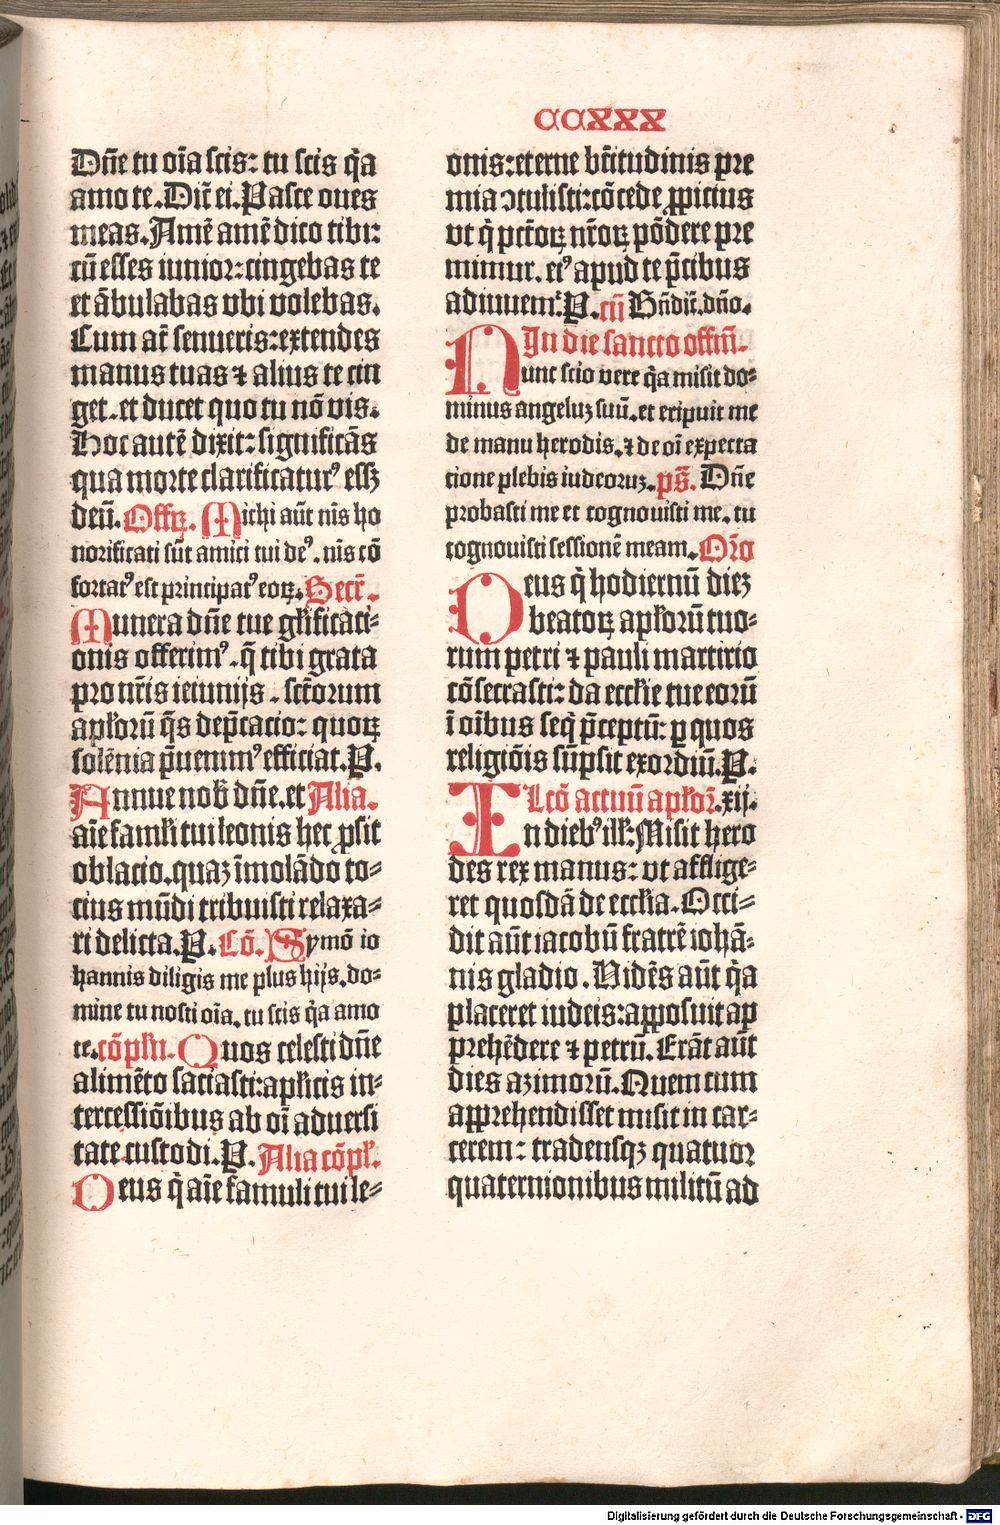 CCXXX
Dn̄e tu oīa scis: tu scis q̄a
amo te. Dic̄ ei. Pasce oues
meas. Amē amē dico tibi:
cū esses iunior: cingebas te
et ābulabas vbi volebas.
Cum aūt senueris: extendes
manus tuas ⁊ alius te cin
get. et ducet quo tu nō vis.
Hoc autē dixit: significās
qua morte clarificatur⁹ essꝫ
deū. Offꝝ. Michi aūt nīs ho
norificati sūt amici tui de⁹. nīs cō
fortat⁹ est principat⁹ eoꝝ. Secr̄.
Munera dn̄e tue gl̄ificati-
onis offerim⁹. q̄ tibi grata
pro nr̄is ieiunijs. sctōrum
apl̄orū q̄s dep̄cacio: quoꝝ
solēnia p̄uenim⁹ efficiat. P.
Annue nob̄ dn̄e. et Alia.
aīe faml̄i tui leonis hec ꝓsit
oblacio. quaꝫ īmolādo to-
cius mūdi tribuisti relaxa-
ri delicta. P. Cō. Symō io
hannis diligis me plus hijs. do-
mine tu nosti oīa. tu scis q̄a amo
te. cōpl̄n. Quos celesti dn̄e
alimēto saciasti: apl̄icis in-
tercessiōibus ab oī aduersi
tate custodi. P. Alia cōpl̄.
Deus q̄ aīe famuli tui le-
onis: eterne br̄itudinis pre
mia ↄtulisti: cōcede ꝓpicius
vt q̄ pctōꝝ nr̄oꝝ pōdere pre
mimur. ei⁹ apud te p̄cibus
adiuuem̄. P. cū Bn̄dic̄. dn̄o.
In die sancto offm̄.
Nunc scio vere q̄a misit do-
minus angeluꝫ suū. et eripuit me
de manu herodis. ⁊ de oī expecta
tione plebis iudeoruꝫ. ps̄. Dn̄e
probasti me et cognouisti me. tu
cognouisti sessionē meam. Or̄o
Deus q̄ hodiernū dieꝫ
beatoꝝ apl̄orū tuo-
rum petri ⁊ pauli martirio
cōsecrasti: da eccl̄ie tue eorū
ī oībus seq̄ p̄ceptū: ꝑ quos
religiōis sūpsit exordiū. P.
Lcō actuū apl̄oꝝ. xij.
In dieb⁹ ill̄: Misit hero
des rex manus: vt afflige-
ret quosdā de eccl̄ia. Occi-
dit aūt iacobū fratrē iohā-
nis gladio. Uidēs aūt q̄a
placeret iudeis: apposuit ap
prehēdere ⁊ petrū. Erāt aūt
dies azimorū. Quem cum
apprehendisset misit in car-
cerem: tradensqꝫ quatuor
quaternionibus militū ad
Digitalisierung gefördert durch die Deutsche Forschungsgemeinschaft - DFG